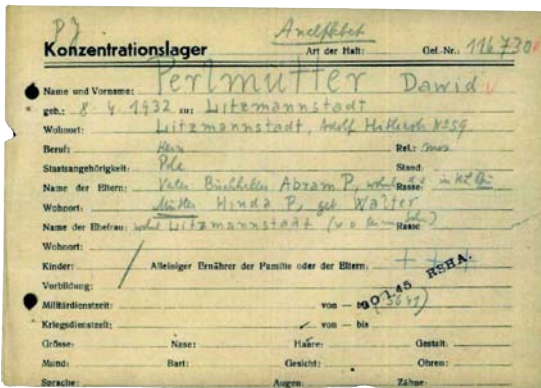 PJ
Konzentrationslager Art der Haft: Gef.-Nr.: 116730
Name und Vorname: Perlmutter Dawid
geb.: 8. 4. 1932 zu: Litzmannstadt
Wohnort: Litzmannstadt, Adolf Hitlerstr N259
Beruf: Rel.: mos
Staatsangehörigkeit: Pole Stand:
Name der Eltern: Vater: Abram P, Rasse:
Wohnort: Mutter Hinda P, geb Walter
Name der Ehefrau: wohnt Litzmannstadt Rasse:
Wohnort:
Kinder: Alleiniger Ernährer der Familie oder der Eltern:
Vorbildung: RSHA.
Militärdienstzeit: von — bis
Kriegsdienstzeit: von — bis
Grösse: Nase: Haare: Gestalt:
Mund: Bart: Gesicht: Ohren:
Sprache: Augen: Zähne: